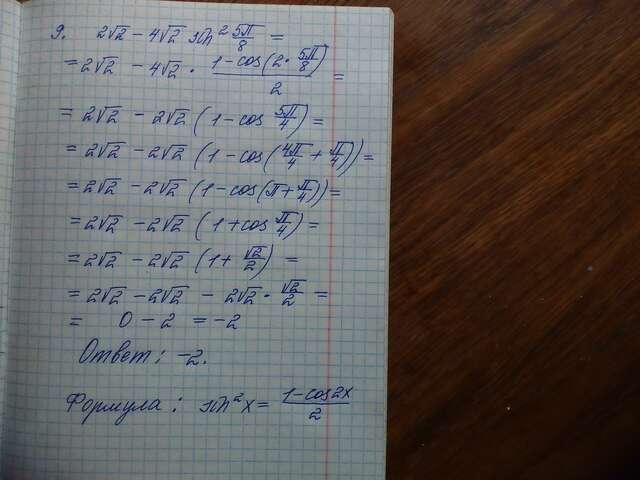 9. 2√2 - 4√2 sin² 5π/8 =
= 2√2 - 4√2 · (1-cos(2·5π/8))/2 =
= 2√2 - 2√2 (1-cos 5π/4) =
= 2√2 - 2√2 (1-cos(4π/4 + π/4)) =
= 2√2 - 2√2 (1-cos(π+π/4)) =
= 2√2 - 2√2 (1+cos π/4) =
= 2√2 - 2√2 (1+ √2/2) =
= 2√2 - 2√2 - 2√2 · √2/2 =
= 0 - 2 = -2
Ответ: -2.
Формула: sin²x = (1-cos2x)/2